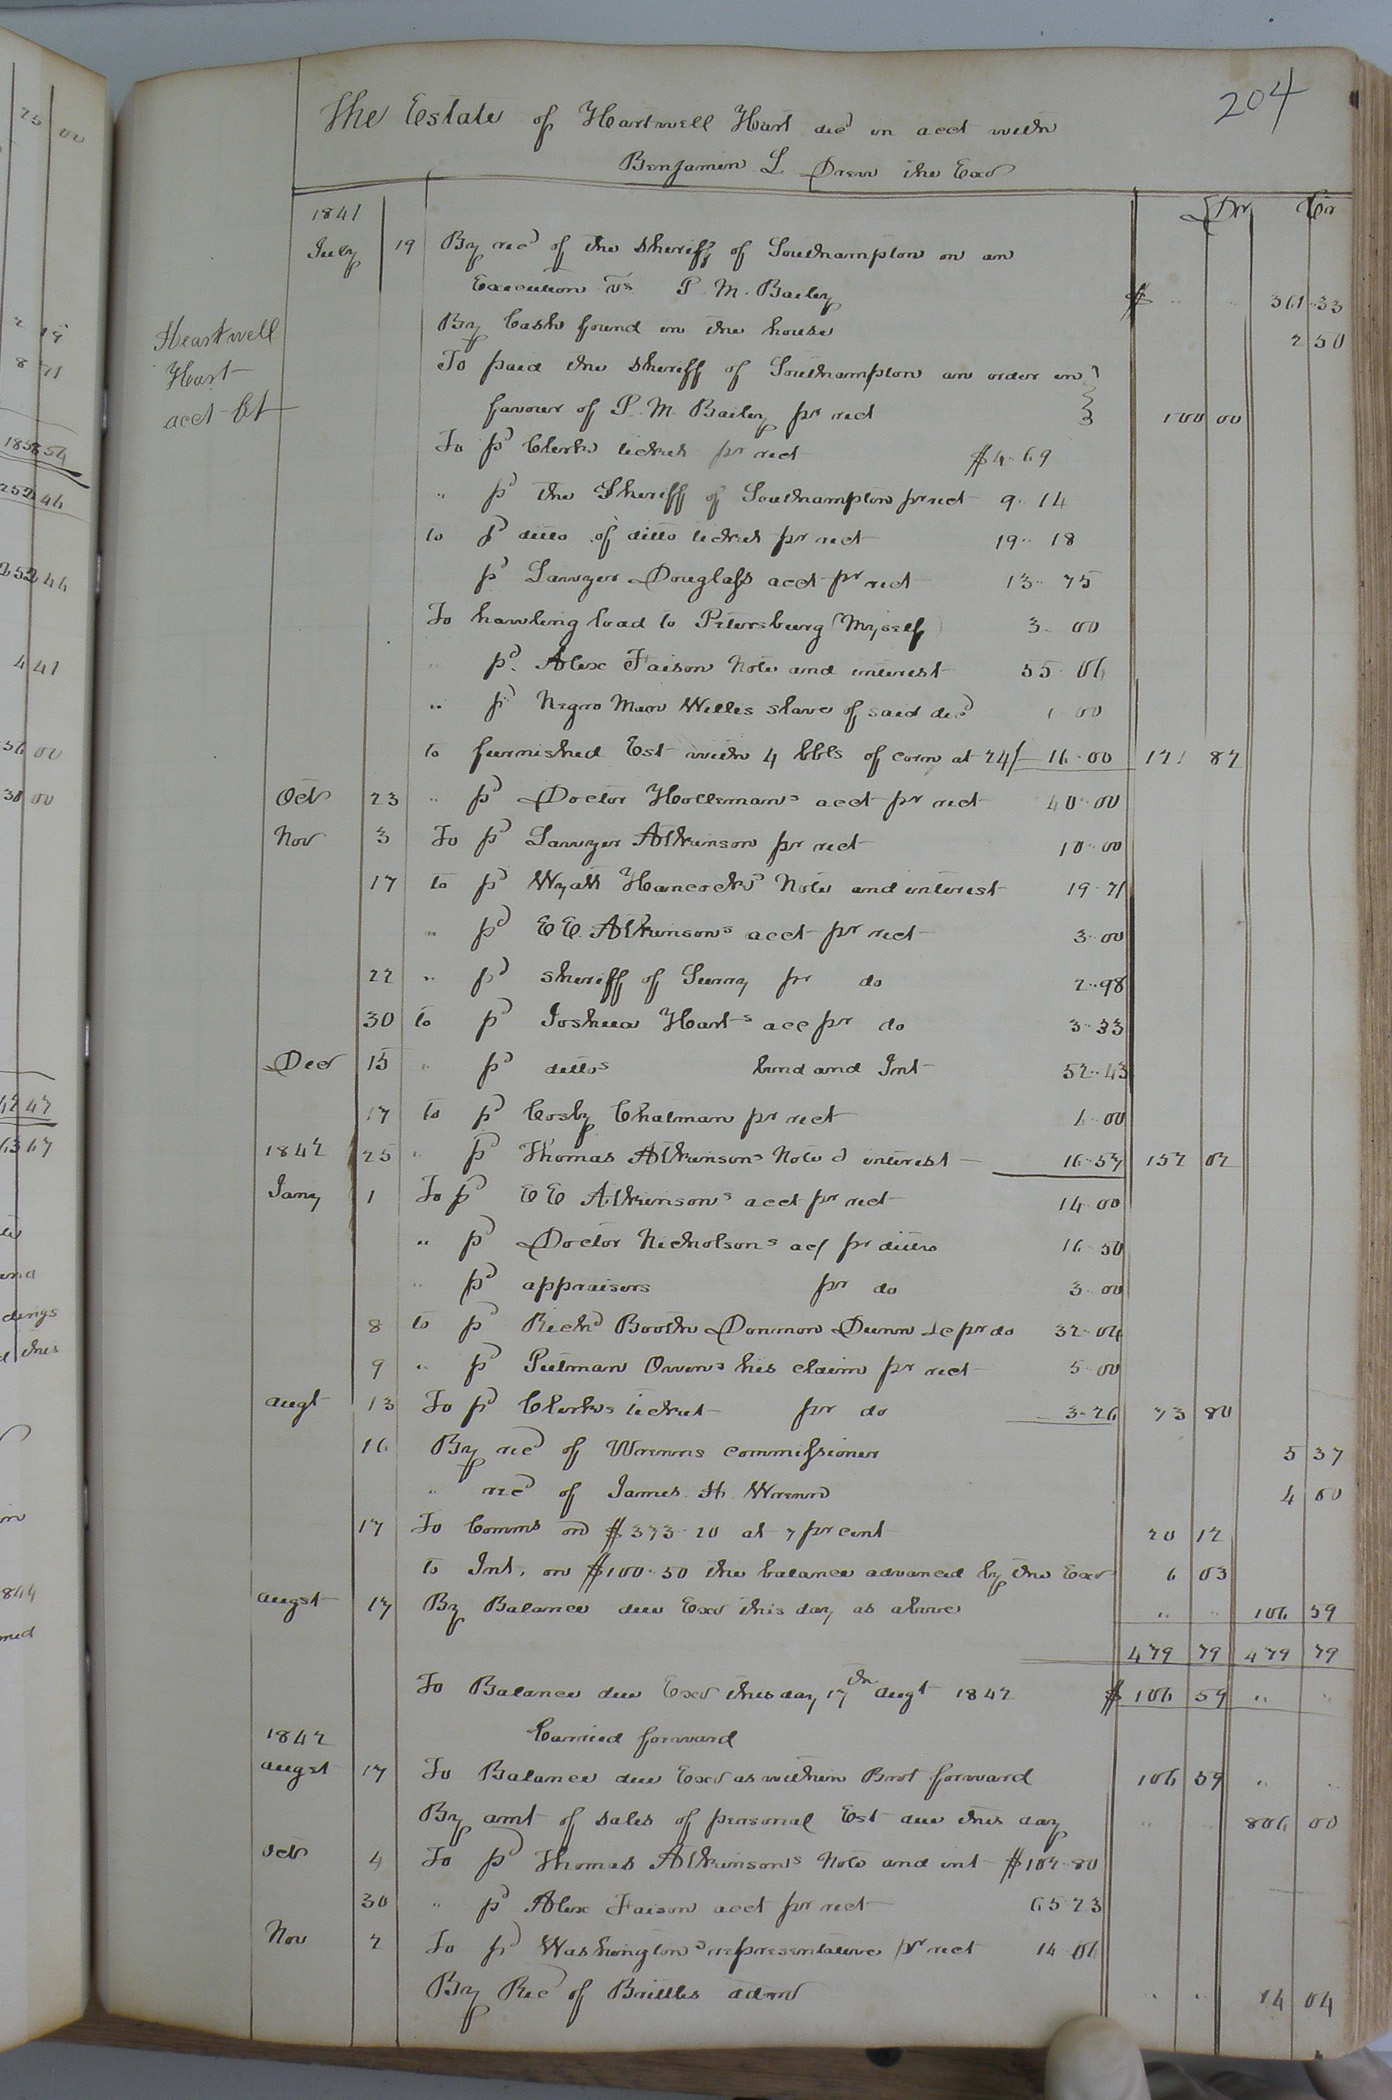 204
The Estate of Hartwell Hart decd in acct with
Benjamin L. Drew the Exor
Dr Cr
1841
July 19 By recd of the Sheriff of Southampton on an
Execution vs P. M. Bailey $ " " 361 33
Heartwell
Hart
acct Ct
By Cash found in the house 2 50
To paid the Sheriff of Southampton an order in
favour of P. M. Bailey pr rect 100 00
To pd Clerks ticket pr rect $4.69
" pd the Sheriff of Southampton pr rect 9.14
to pd ditto of ditto ticket pr rect 19.18
pd Lawyer Douglass acct pr rect 13.75
To hawling load to Petersburg (Myself) 3.00
" pd Alex Faison Note and interest 55.06
" pd Negro Man Willis slave of said decd 1.00
to furnished Est with 4 bbls of corn at 24/ 16.00 121 82
Oct 23 " pd Doctor Hollemans acct pr rect 40.00
Nov 3 To pd Lawyer Atkinson pr rect 10.00
17 to pd Wyatt Hancocks Note and interest 19.71
" pd E E. Atkinsons acct pr rect 3.00
22 " pd Sheriff of Surry pr do 2.98
30 to pd Joshua Harts acc pr do 3.33
Decr 15 " pd dittos bond and Int 52.43
17 to pd Cosby Chatman pr rect 4.00
1842 25 " pd Thomas Atkinsons Note & interest 16.57 152 02
Jany 1 To pd E E Atkinsons acct pr rect 14.00
" pd Doctor Nicholsons ac/ pr ditto 16.50
" pd appraisers pr do 3.00
8 to pd Richd Booth Donmon Dunn &c pr do 32.04
9 " pd Putman Owens his claim pr rect 5.00
augt 13 To pd Clerks ticket pr do 3.26 73 80
16 By recd of Wrenns commissioner 5 37
" recd of James H. Wrenn 4 00
17 To Comms on $373.20 at 7 pr cent 20 12
to Int. on $100.50 the balance advanced by the Exor 6 03
augst 17 By Balance due Exor this day as above " " 106 59
479 79 479 79
To Balance due Exor this day 17th augt 1842 $ 106 59 " "
Carried forward
1842
augst 17 To Balance due Exor as within Brot forward 106 59 " "
By amt of sales of personal Est due this day " " 806 00
Oct 4 To pd Thomas Atkinsons Note and int $107.80
30 " pd Alex Faison acct pr rect 65.23
Nov 2 To pd Washingtons representative pr rect 14.06
By Recd of Brittles admr " " 14 04